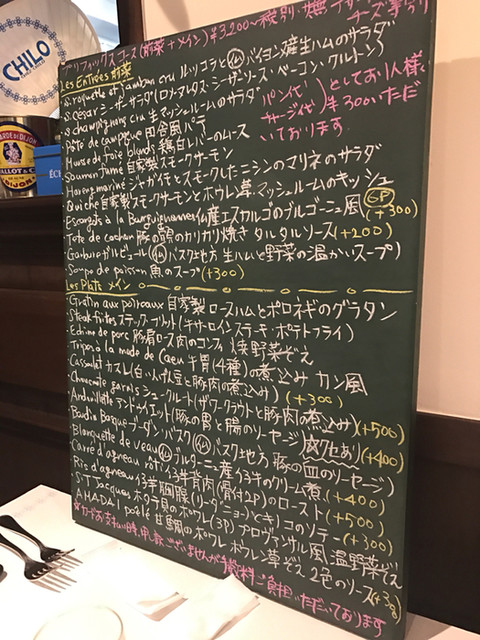 プリフィックスコース(前菜+メイン)¥3,200~税別
Les Entrées 前菜
S.roquette et Jambon cru ルッコラとバイヨンヌ産生ハムのサラダ
S.césar シーザーサラダ(ロメインレタス・シーザーソース・ベーコン・クルトン)
S.champignons cru 生マッシュルームのサラダ
パン代 チャージ代)としてお1人様¥300いただいております
Pâté de campagne 田舎風パテ
Mousse de foie blonds 鶏白レバーのムース
Saumon fumé 自家製スモークサーモン
Hareng mariné ジャガイモとスモークしたニシンのマリネのサラダ
Quiche 自家製スモークサーモンとホウレン草マッシュルームのキッシュ
Escargots à la Bourguignonne 産エスカルゴのブルゴーニュ風 6P (+300)
Tête de cochon 豚の頭のカリカリ焼き タルタルソース(+200)
Garbure ガルビュール(バスク地方 生ハムと野菜の温かいスープ)
Soupe de poisson 魚のスープ(+300)
Les Plats メイン
Gratin aux poireaux 自家製ロースハムとポロネギのグラタン
Steak frites ステック・フリット(牛サーロインステーキ・ポテトフライ)
Echine de porc 豚肩ロース肉のコンフィ 野菜ぞえ
Tripes à la mode de Caen 牛胃(4種)の煮込み カン風
Cassoulet カスレ(白いんげん豆と豚肉の煮込み) (+300)
Choucroute garnis シュークルート(ザワークラウトと豚肉の煮込み)(+500)
Andouillette アンドゥイエット(豚の胃と腸のソーセージ)☆クセあり(+400)
Boudin Basque ブーダンバスク バスク地方 豚の血のソーセージ)
Blanquette de veau ブルターニュ産仔牛のクリーム煮(+400)
Carré d'agneau rôti 仔羊背肉(骨付2P)のロースト(+500)
Ris d'agneau 仔羊胸腺(リー・ダニョー)とキノコのソテー(+300)
S.T Jacques ホタテ貝のポワレ(3P)プロヴァンサル風 温野菜ぞえ
AMADAI poêlé 甘鯛のポワレ ホウレン草ぞえ 2色のソース(+300)
☆カードお支払い時、申し訳ございませんが手数料ご負担いただいております
CHILO
DIJON